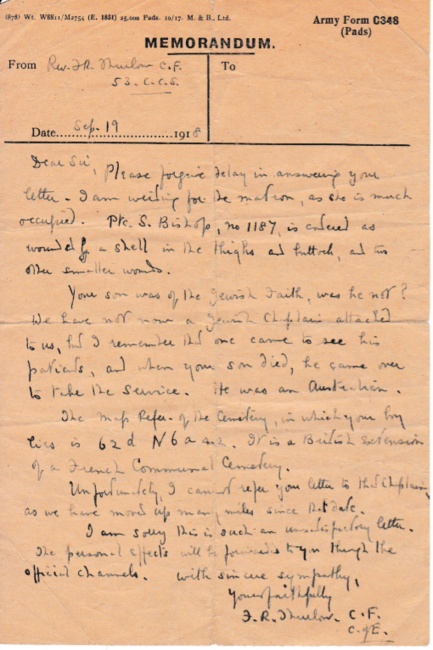 (878) Wt. W8811/M2754 (E. 1851) 25,000 Pads. 10/17. M. & B., Ltd.
Army Form C348
(Pads)
MEMORANDUM.
From Rev. F.R. Thurlow C.F.
53. C.C.S.
To
Date Sep. 19 1918
Dear Sir,
Please forgive delay in answering your
letter - I am writing for the matron, as she is much
occupied. Pte. S. Bishop, no 1187, is entered as
wounded by a shell in the thighs and buttock, and two
other smaller wounds.
Your son was of the Jewish Faith, was he not?
We have not now a Jewish Chaplain attached
to us, but I remember that one came to see his
patients, and when your son died, he came over
to take the service. He was an Australian.
The Map Refer. of the Cemetery, in which your boy
lies is 62d N6a. It is a British extension
of a French Communal Cemetery.
Unfortunately, I cannot refer your letter to that Chaplain,
as we have moved up many miles since that date.
I am sorry this is such an unsatisfactory letter.
The personal effects will be forwarded to you through the
official channels. With sincere sympathy,
Yours faithfully
F.R. Thurlow. C.F.
C. of E.